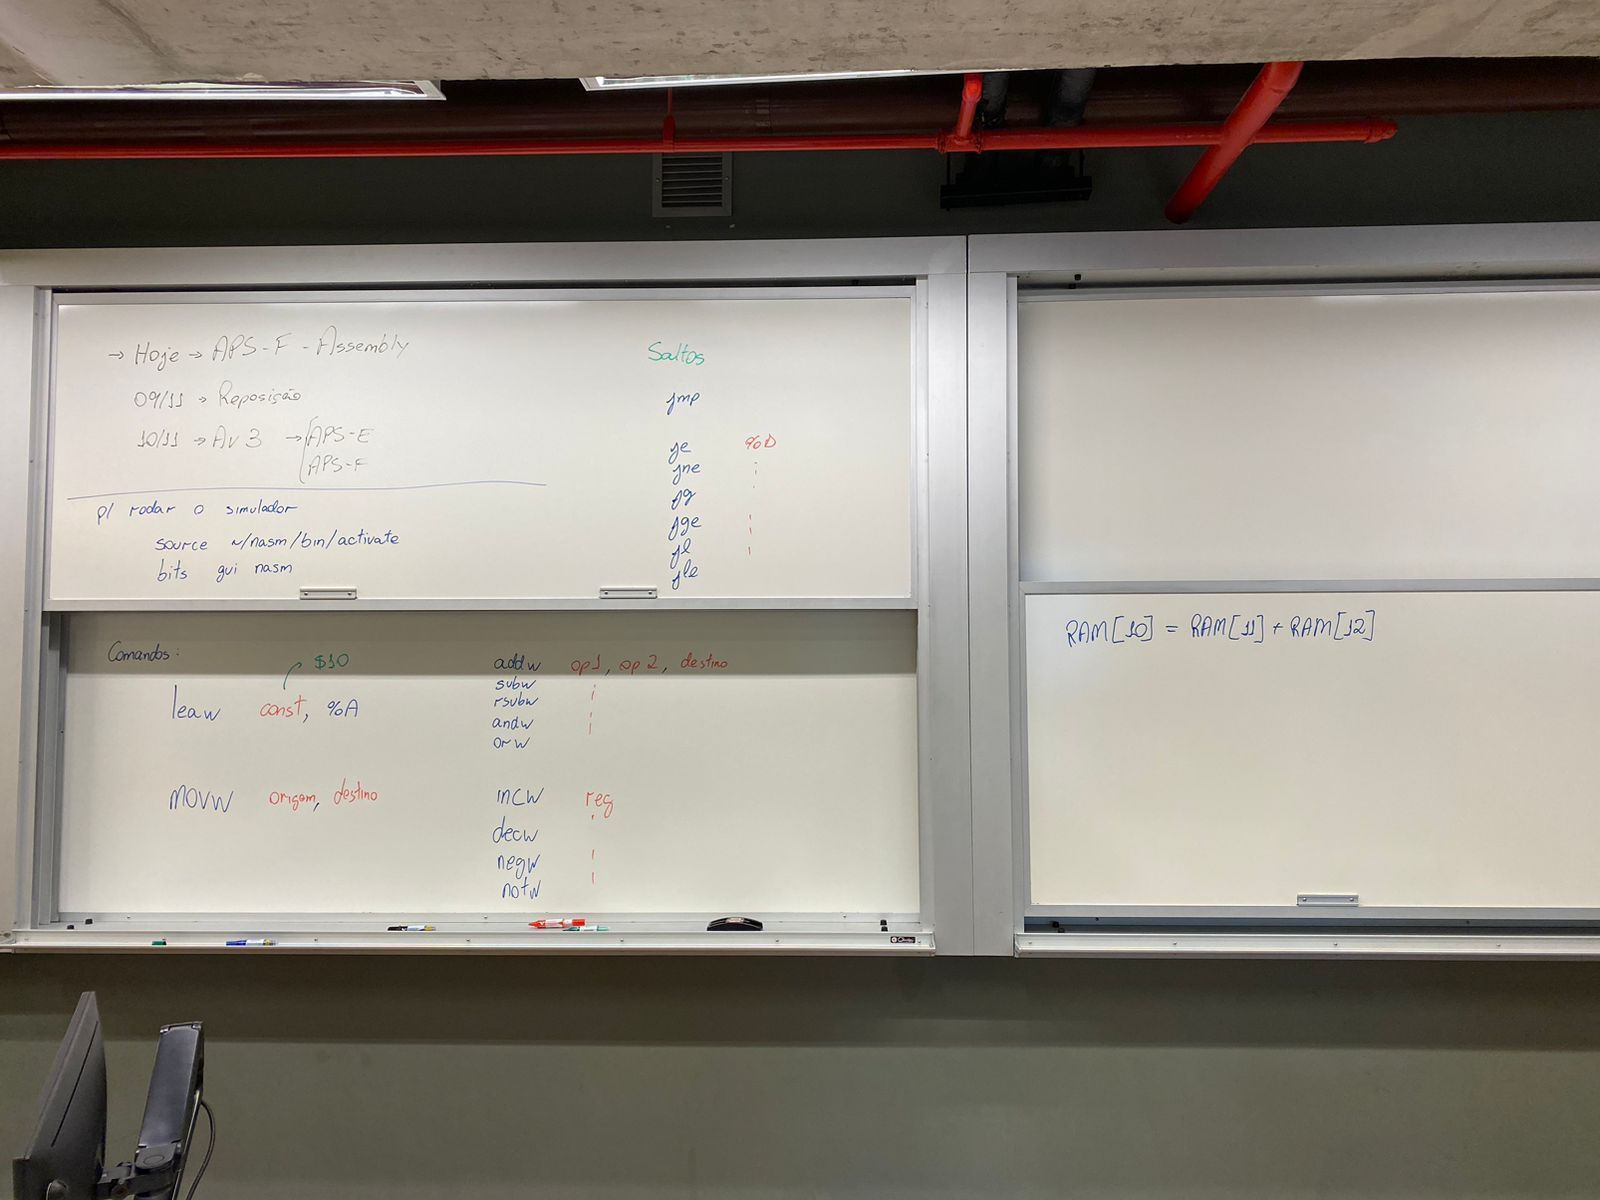 → Hoje → APS-F - Assembly
09/11 → Reposição
10/11 → Av 3 → APS-E
APS-F
p/ rodar o simulador
source ~/nasm/bin/activate
bits gui nasm
Saltos
jmp
je %D
jne
jg
jge
jl
jle
Comandos:
$10
leaw const, %A
movw origem, destino
addw op1, op2, destino
subw
rsubw
andw
orw
incw reg
decw
negw
notw
RAM[10] = RAM[11] + RAM[12]